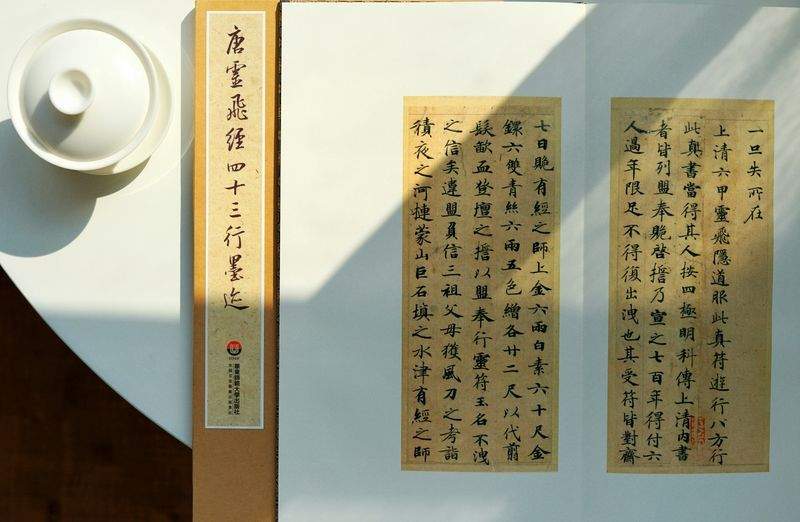 唐靈飛經四十三行墨迹
華東師範大學出版社
一旦失所在
上清六甲靈飛隱道服此真符遊行八方行
此真書當得其人按四極明科傳上清內書
者皆列盟奉賝啓誓乃宣之七百年得付六
人過年限足不得復出洩也其受符皆對齋
七日賝有經之師上金六兩白素六十尺金
鐶六雙青絲六兩五色繒各廿二尺以代翦
髮歃血登壇之誓以盟奉行靈符玉名不洩
之信矣違盟負信三祖父母獲風刀之考詣
積夜之河摙蒙山巨石填之水津有經之師